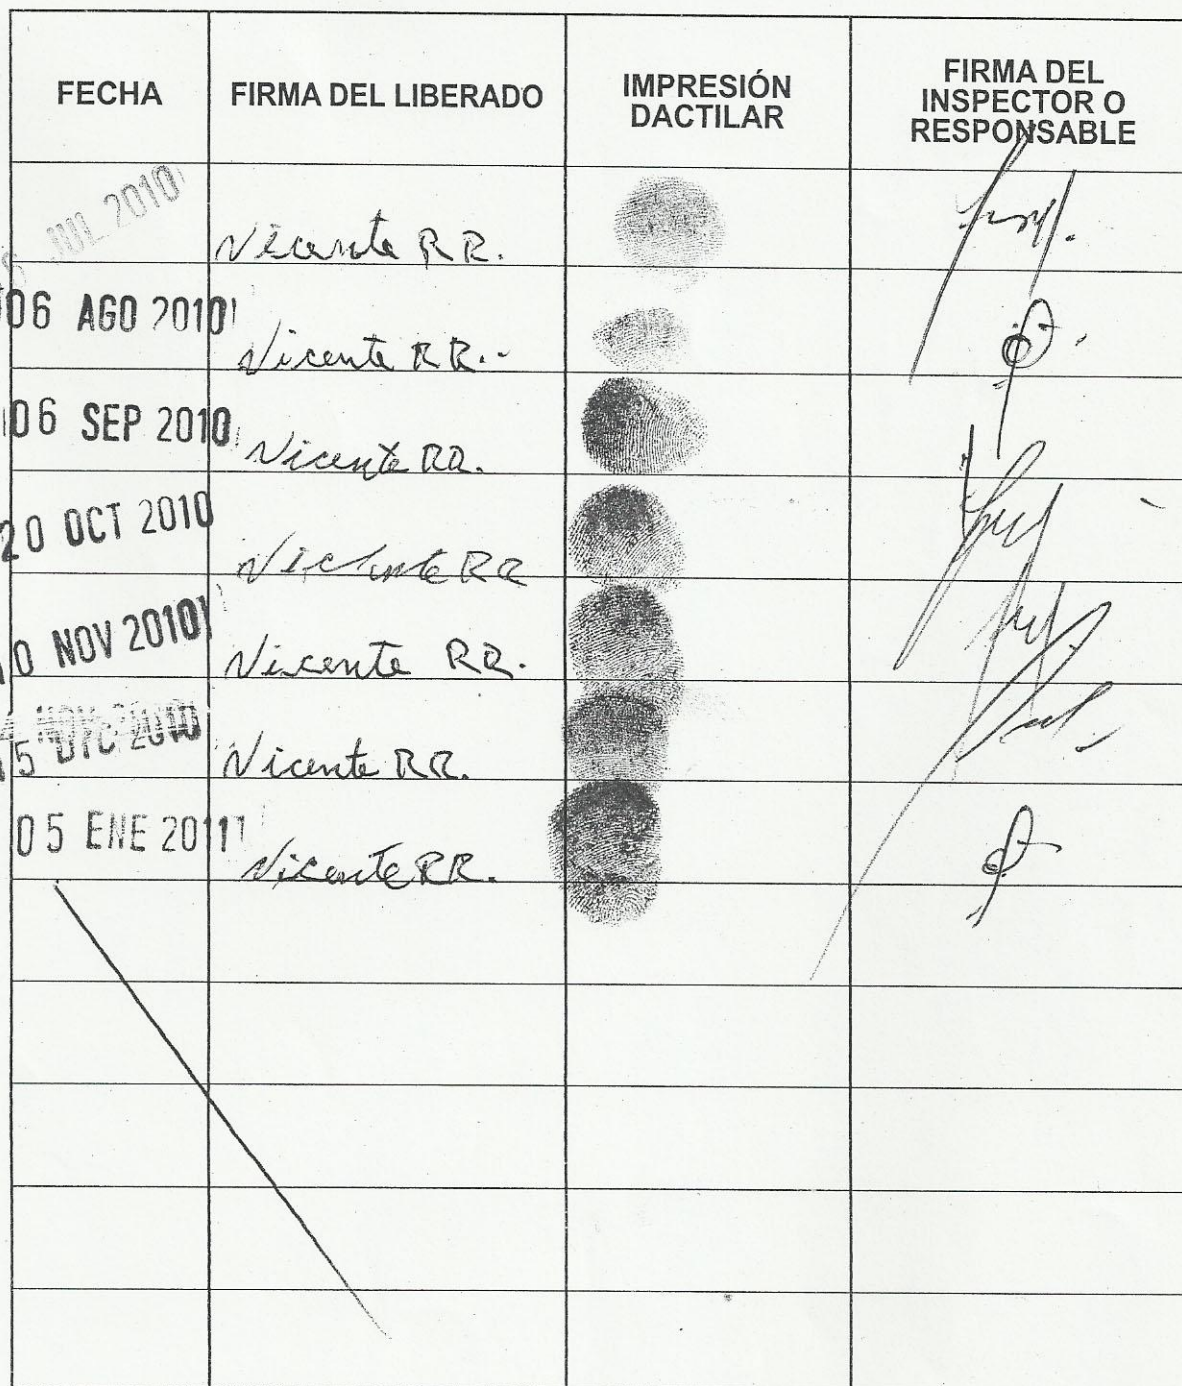 FECHA
FIRMA DEL LIBERADO
IMPRESIÓN
DACTILAR
FIRMA DEL
INSPECTOR O
RESPONSABLE
JUL 2010
Vicente R R.
06 AGO 2010
Vicente R R..
06 SEP 2010
Vicente RR.
20 OCT 2010
Vicente RR
0 NOV 2010
Vicente RR.
NOV 2010
5 DIC 2010
Vicente RR.
05 ENE 2011
Vicente RR.